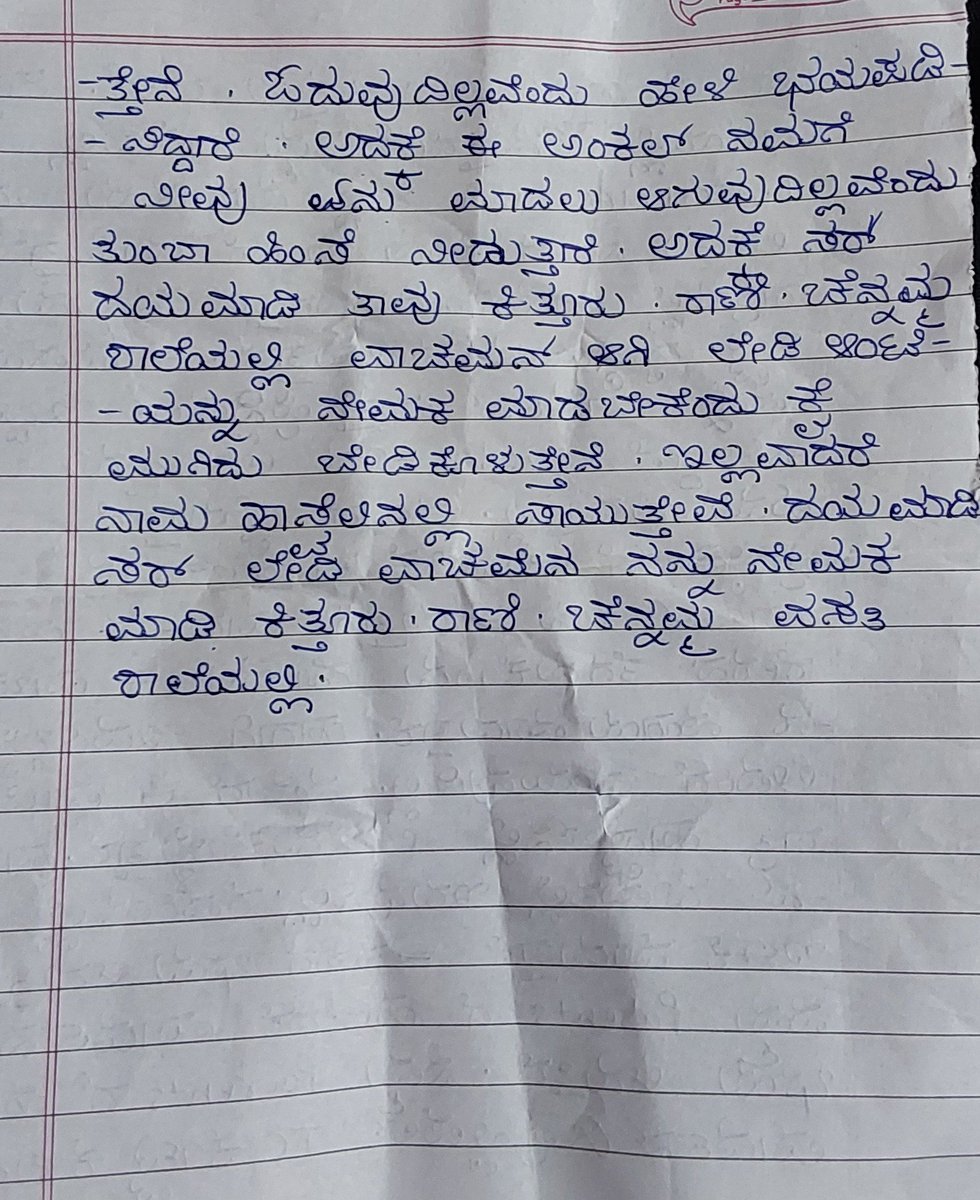 -ತ್ತೇನೆ . ಓದುವುದಿಲ್ಲವೆಂದು ಹೇಳಿ ಭಯಪಡಿ-
- ಸಿದ್ದಾರೆ . ಅದಕೆ ಈ ಅಂಕಲ್ ನಮಗೆ
ನೀವು ಏನು ಮಾಡಲು ಆಗುವುದಿಲ್ಲವೆಂದು
ತುಂಬಾ ಹಿಂಸೆ ನೀಡುತ್ತಾರೆ . ಅದಕೆ ಸರ್
ದಯಮಾಡಿ ತಾವು ಕಿತ್ತೂರು . ರಾಣಿ . ಚೆನ್ನಮ್ಮ
ಶಾಲೆಯಲ್ಲಿ ವಾಚಮನ್ ಆಗಿ ಲೇಡಿ ಆಂಟಿ-
-ಯನ್ನು ನೇಮಕ ಮಾಡಬೇಕೆಂದು ಕೈ
ಮುಗಿದು ಬೇಡಿಕೊಳುತ್ತೇನೆ . ಇಲ್ಲವಾದರೆ
ನಾವು ಹಾಸ್ಟೆಲಿನಲ್ಲಿ ಸಾಯುತ್ತೇವೆ . ದಯಮಾಡಿ
ಸರ್ ಲೇಡಿ ವಾಚಮೆನ ನನ್ನು ನೇಮಕ
ಮಾಡಿ ಕಿತ್ತೂರು . ರಾಣಿ . ಚೆನ್ನಮ್ಮ ವಸತಿ
ಶಾಲೆಯಲ್ಲಿ .